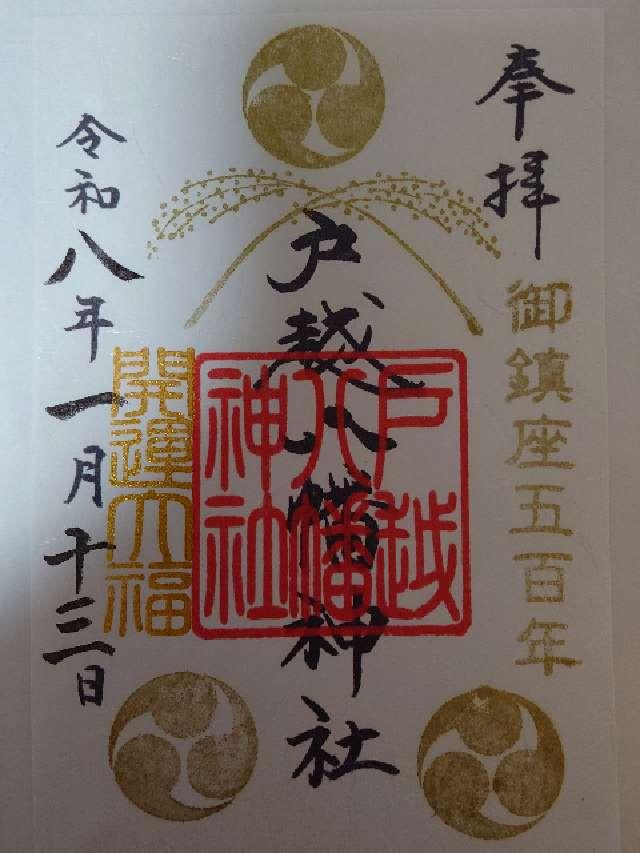 奉拝
御鎮座五百年
戸越八幡神社
戸越
八幡
神社
開運大福
令和八年一月十三日